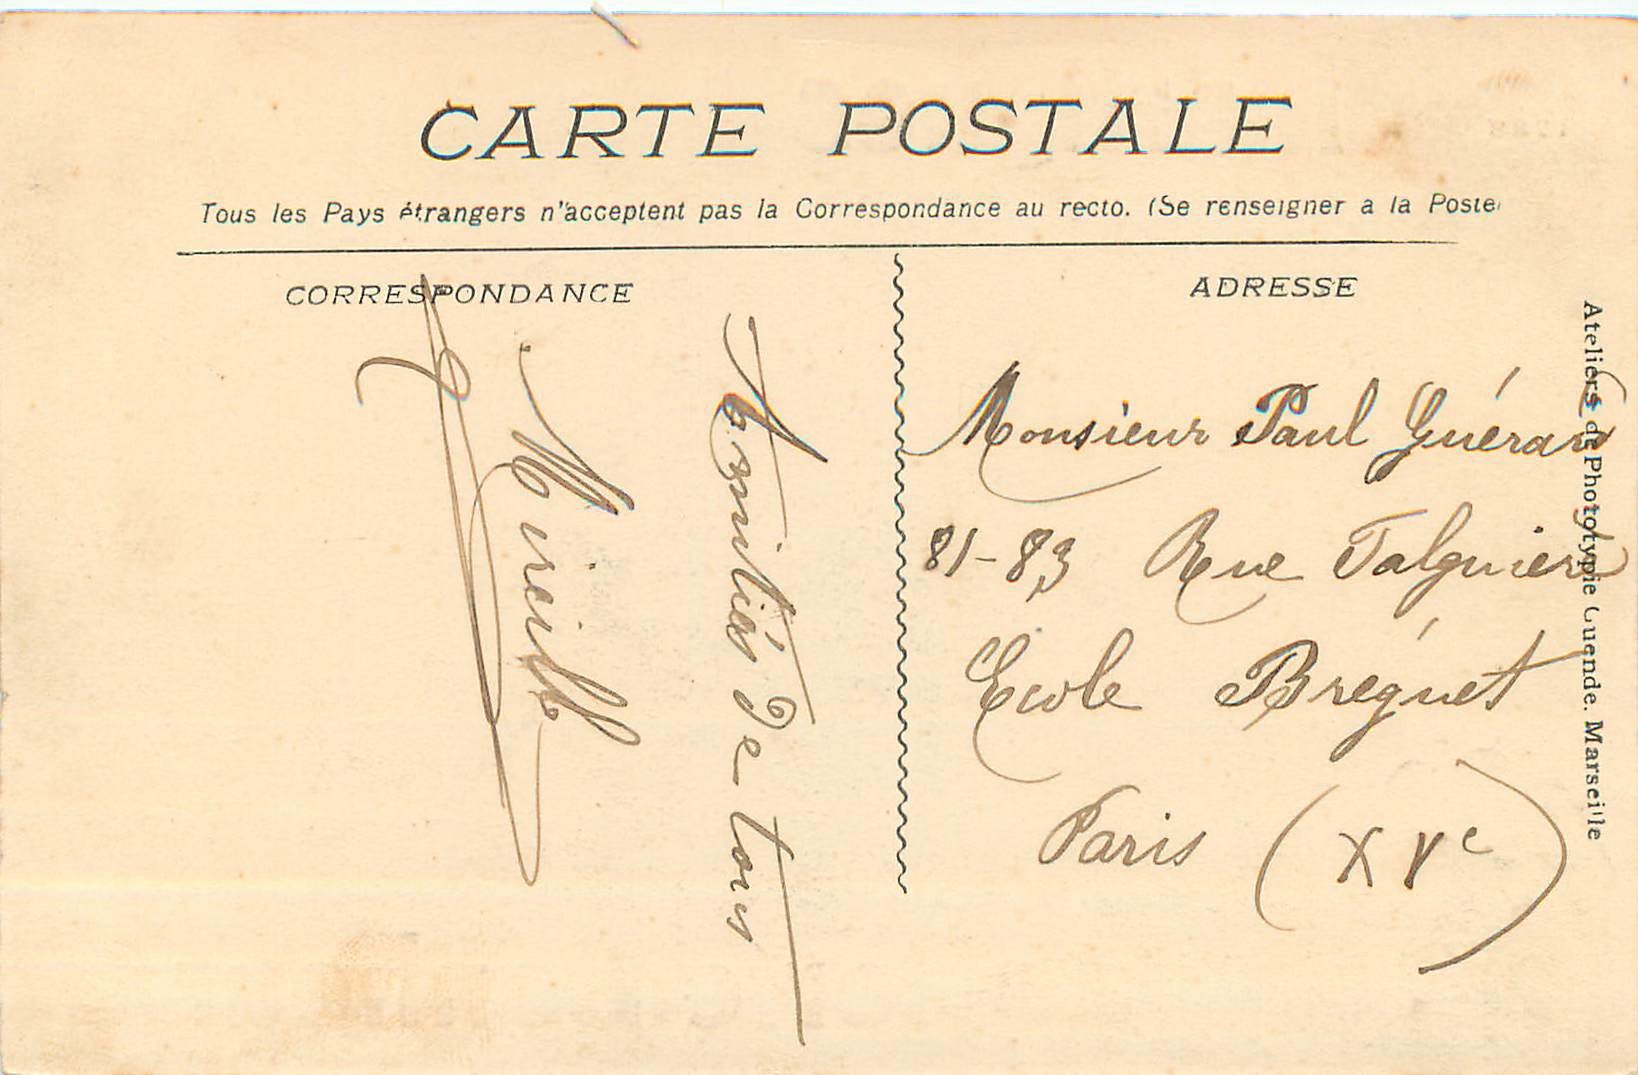 CARTE POSTALE
Tous les Pays étrangers n'acceptent pas la Correspondance au recto. (Se renseigner a la Poste)
CORRESPONDANCE
Amitiés de tous
Mireille
ADRESSE
Monsieur Paul Guérard
81-83 Rue Falguière
Ecole Bréguet
Paris (XVe)
Ateliers de Phototypie Guende. Marseille